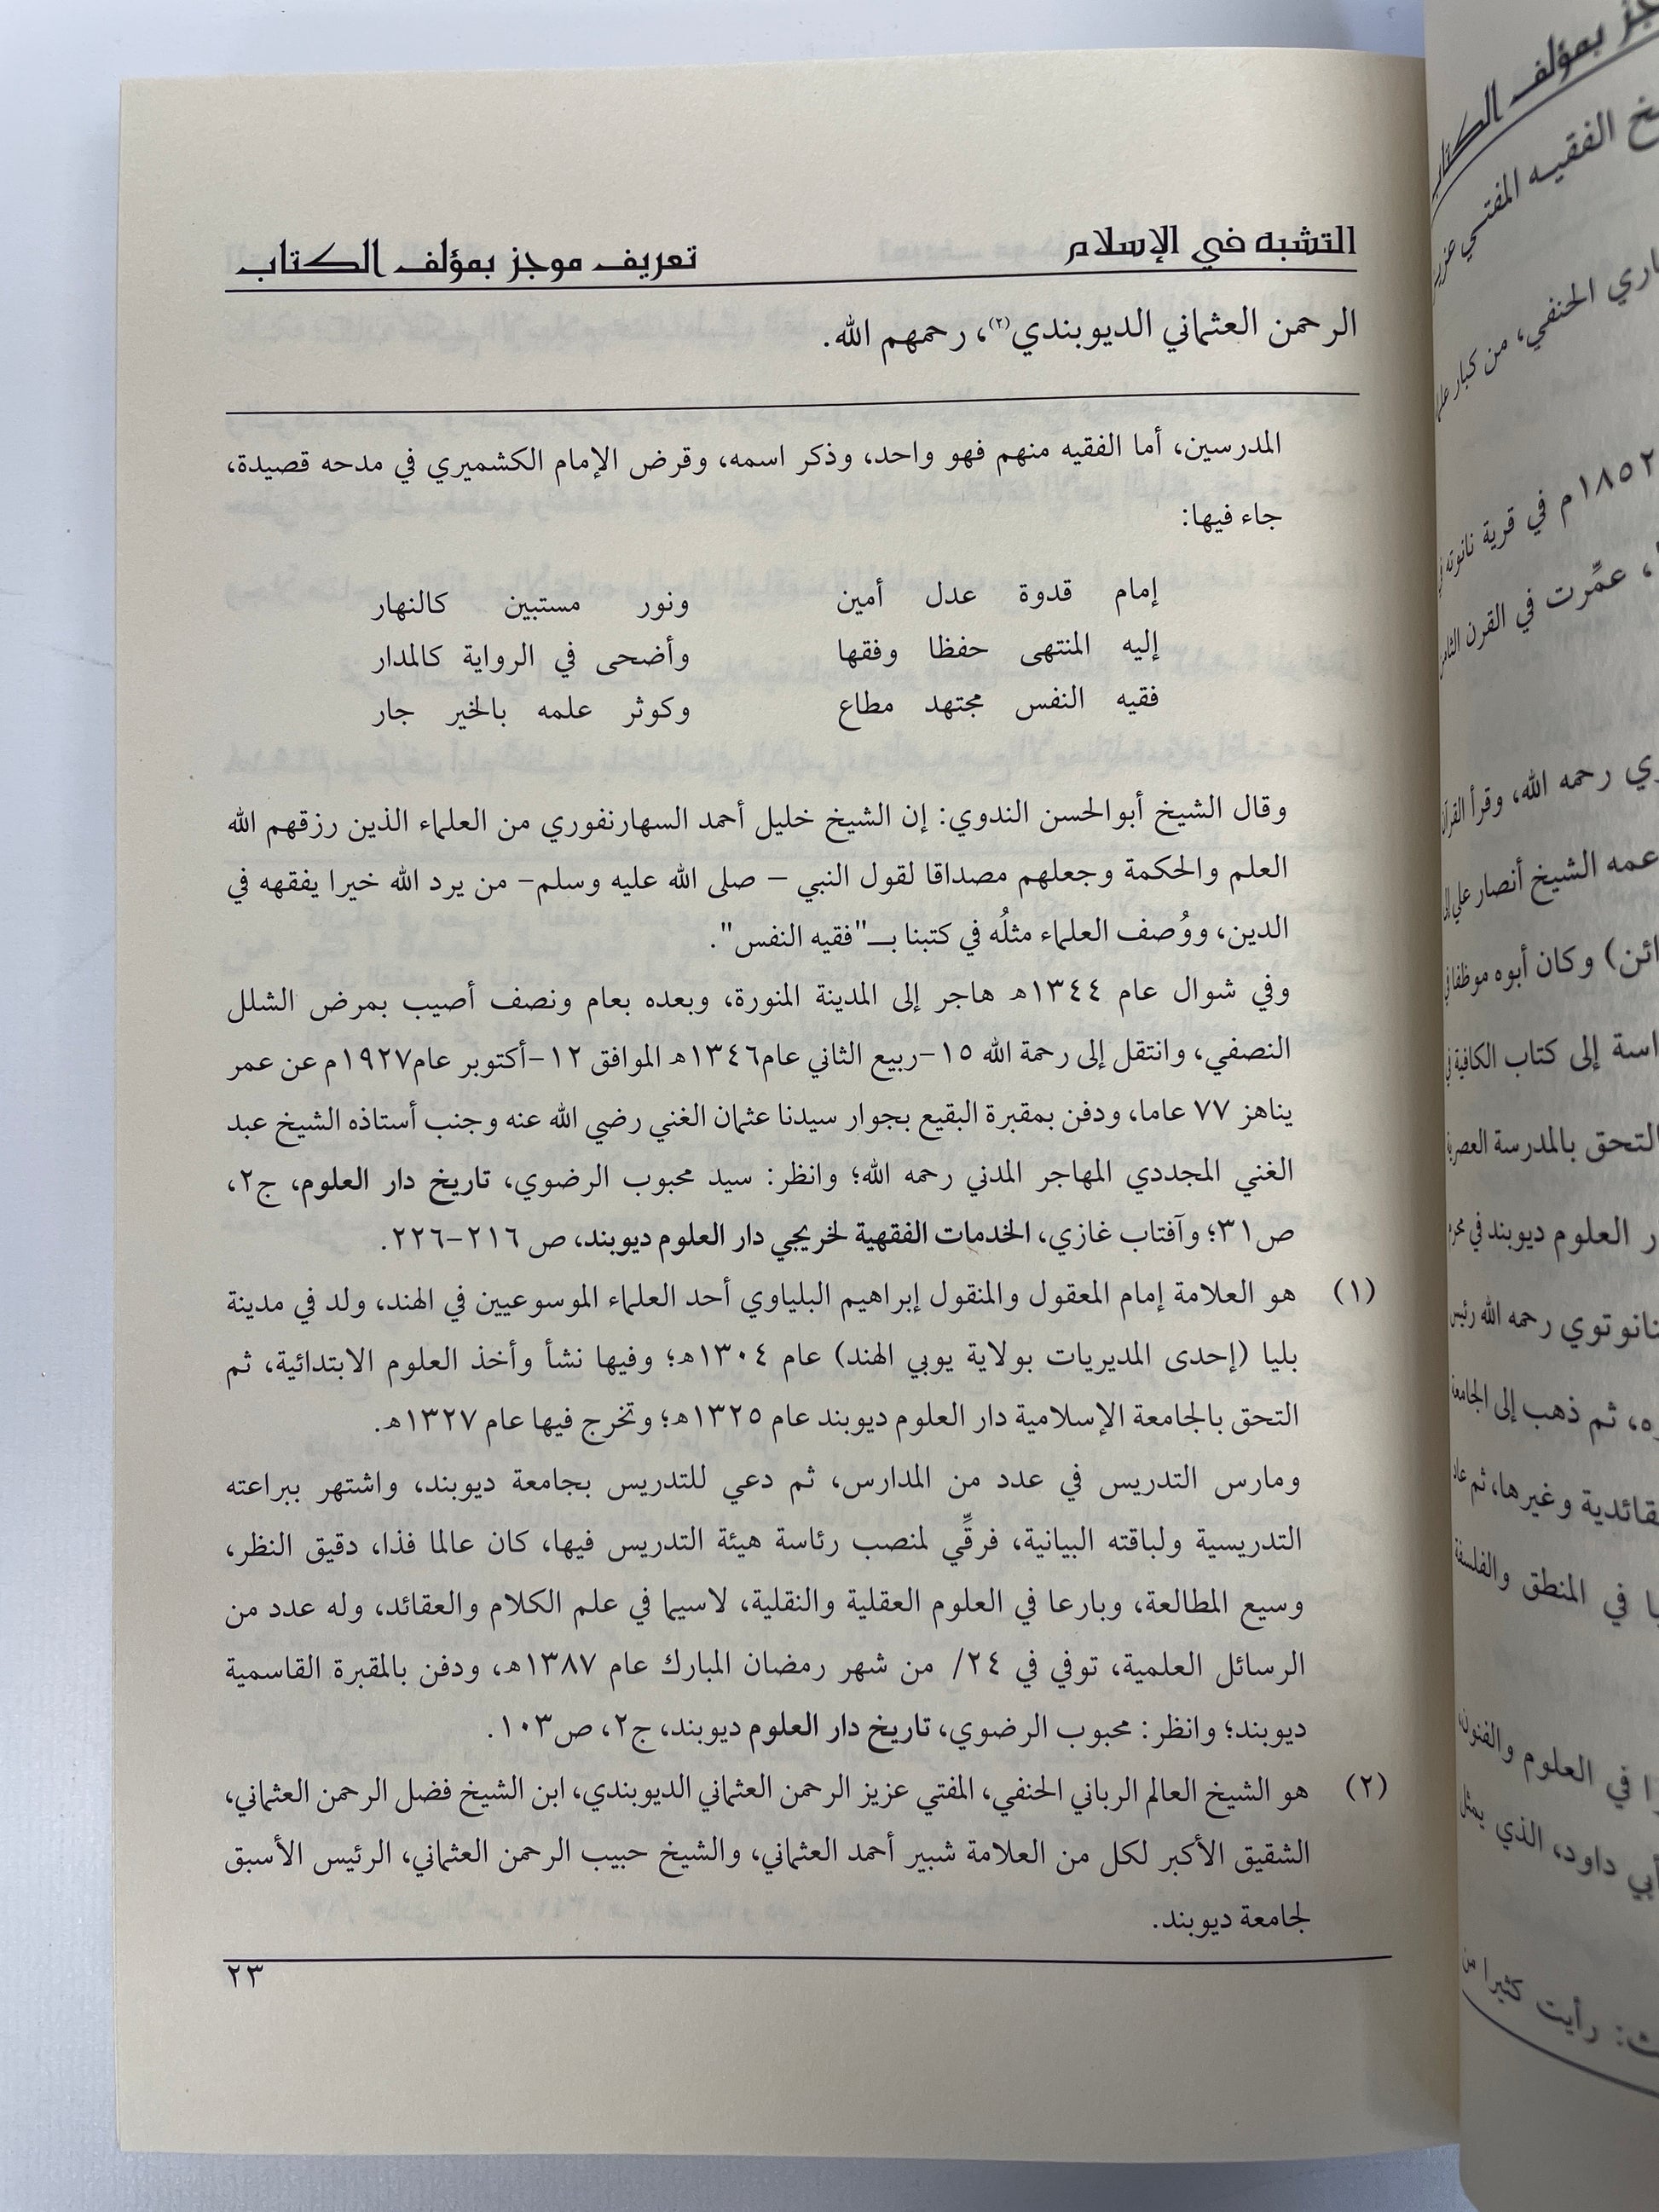 التشبه في الإسلام تعريف موجز بمؤلف الكتاب
الرحمن العثماني الديوبندي(٢)، رحمهم الله.
المدرسين، أما الفقيه منهم فهو واحد، وذكر اسمه، وقرض الإمام الكشميري في مدحه قصيدة،
جاء فيها:
إمام قدوة عدل أمين ونور مستبين كالنهار
إليه المنتهى حفظا وفقها وأضحى في الرواية كالمدار
فقيه النفس مجتهد مطاع وكوثر علمه بالخير جار
وقال الشيخ أبوالحسن الندوي: إن الشيخ خليل أحمد السهارنفوري من العلماء الذين رزقهم الله
العلم والحكمة وجعلهم مصداقا لقول النبي – صلى الله عليه وسلم– من يرد الله خيرا يفقهه في
الدين، ووُصف العلماء مثلُه في كتبنا بــ"فقيه النفس".
وفي شوال عام ١٣٤٤هـ هاجر إلى المدينة المنورة، وبعده بعام ونصف أصيب بمرض الشلل
النصفي، وانتقل إلى رحمة الله ١٥–ربيع الثاني عام١٣٤٦هـ الموافق ١٢–أكتوبر عام١٩٢٧م عن عمر
يناهز ٧٧ عاما، ودفن بمقبرة البقيع بجوار سيدنا عثمان الغني رضي الله عنه وجنب أستاذه الشيخ عبد
الغني المجددي المهاجر المدني رحمه الله؛ وانظر: سيد محبوب الرضوي، تاريخ دار العلوم، ج٢،
ص٣١؛ وآفتاب غازي، الخدمات الفقهية لخريجي دار العلوم ديوبند، ص ٢١٦–٢٢٦.
(١) هو العلامة إمام المعقول والمنقول إبراهيم البلياوي أحد العلماء الموسوعيين في الهند، ولد في مدينة
بليا (إحدى المديريات بولاية يوبي الهند) عام ١٣٠٤هـ؛ وفيها نشأ وأخذ العلوم الابتدائية، ثم
التحق بالجامعة الإسلامية دار العلوم ديوبند عام ١٣٢٥هـ؛ وتخرج فيها عام ١٣٢٧هـ.
ومارس التدريس في عدد من المدارس، ثم دعي للتدريس بجامعة ديوبند، واشتهر ببراعته
التدريسية ولباقته البيانية، فرقِّي لمنصب رئاسة هيئة التدريس فيها، كان عالما فذا، دقيق النظر،
وسيع المطالعة، وبارعا في العلوم العقلية والنقلية، لاسيما في علم الكلام والعقائد، وله عدد من
الرسائل العلمية، توفي في ٢٤/ من شهر رمضان المبارك عام ١٣٨٧هـ، ودفن بالمقبرة القاسمية
ديوبند؛ وانظر: محبوب الرضوي، تاريخ دار العلوم ديوبند، ج٢، ص١٠٣.
(٢) هو الشيخ العالم الرباني الحنفي، المفتي عزيز الرحمن العثماني الديوبندي، ابن الشيخ فضل الرحمن العثماني،
الشقيق الأكبر لكل من العلامة شبير أحمد العثماني، والشيخ حبيب الرحمن العثماني، الرئيس الأسبق
لجامعة ديوبند.
٢٣
بمؤلف الكتاب
الفقيه المفتي
الحنفي، من كبار
١٨٥٢م في قرية نانوته
عمِّرت في القرن
رحمه الله، وقرأ القرآن
عمه الشيخ أنصار علي
وكان أبوه موظفا
إلى كتاب الكافية
التحق بالمدرسة
العلوم ديوبند في
رحمه الله رئيس
ثم ذهب إلى الجامعة
وغيرها، ثم
في المنطق والفلسفة
في العلوم والفنون
داود، الذي يمثل
رأيت كثيرا من